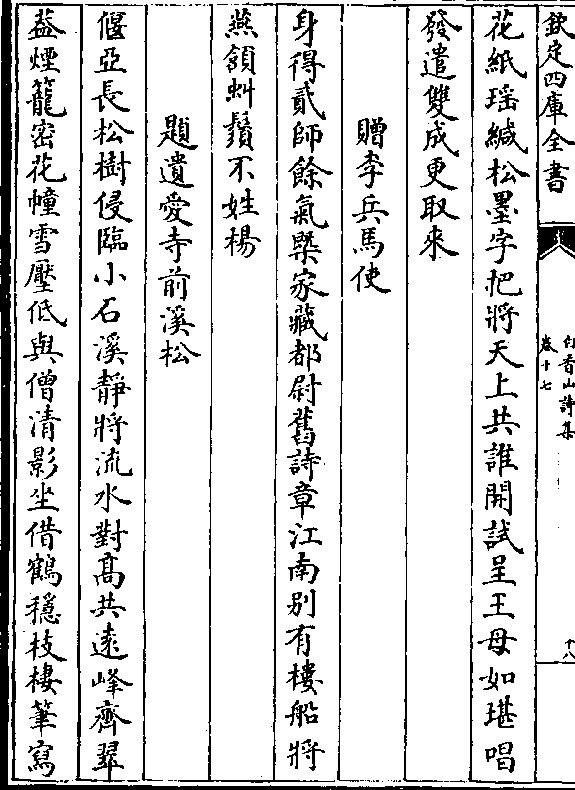 欽定四庫全書
白香山詩集
卷十七
十八
花紙瑶緘松墨字把將天上共誰開試呈王母如堪唱
發遣雙成更取來
贈李兵馬使
身得貳師餘氣槩家藏都尉舊詩章江南別有樓船將
燕頷虬鬚不姓楊
題遺愛寺前溪松
偃亞長松樹侵臨小石溪靜將流水對髙共逺峰齊翠
葢煙籠密花幢雪壓低與僧清影坐借鶴穩枝棲筆寫